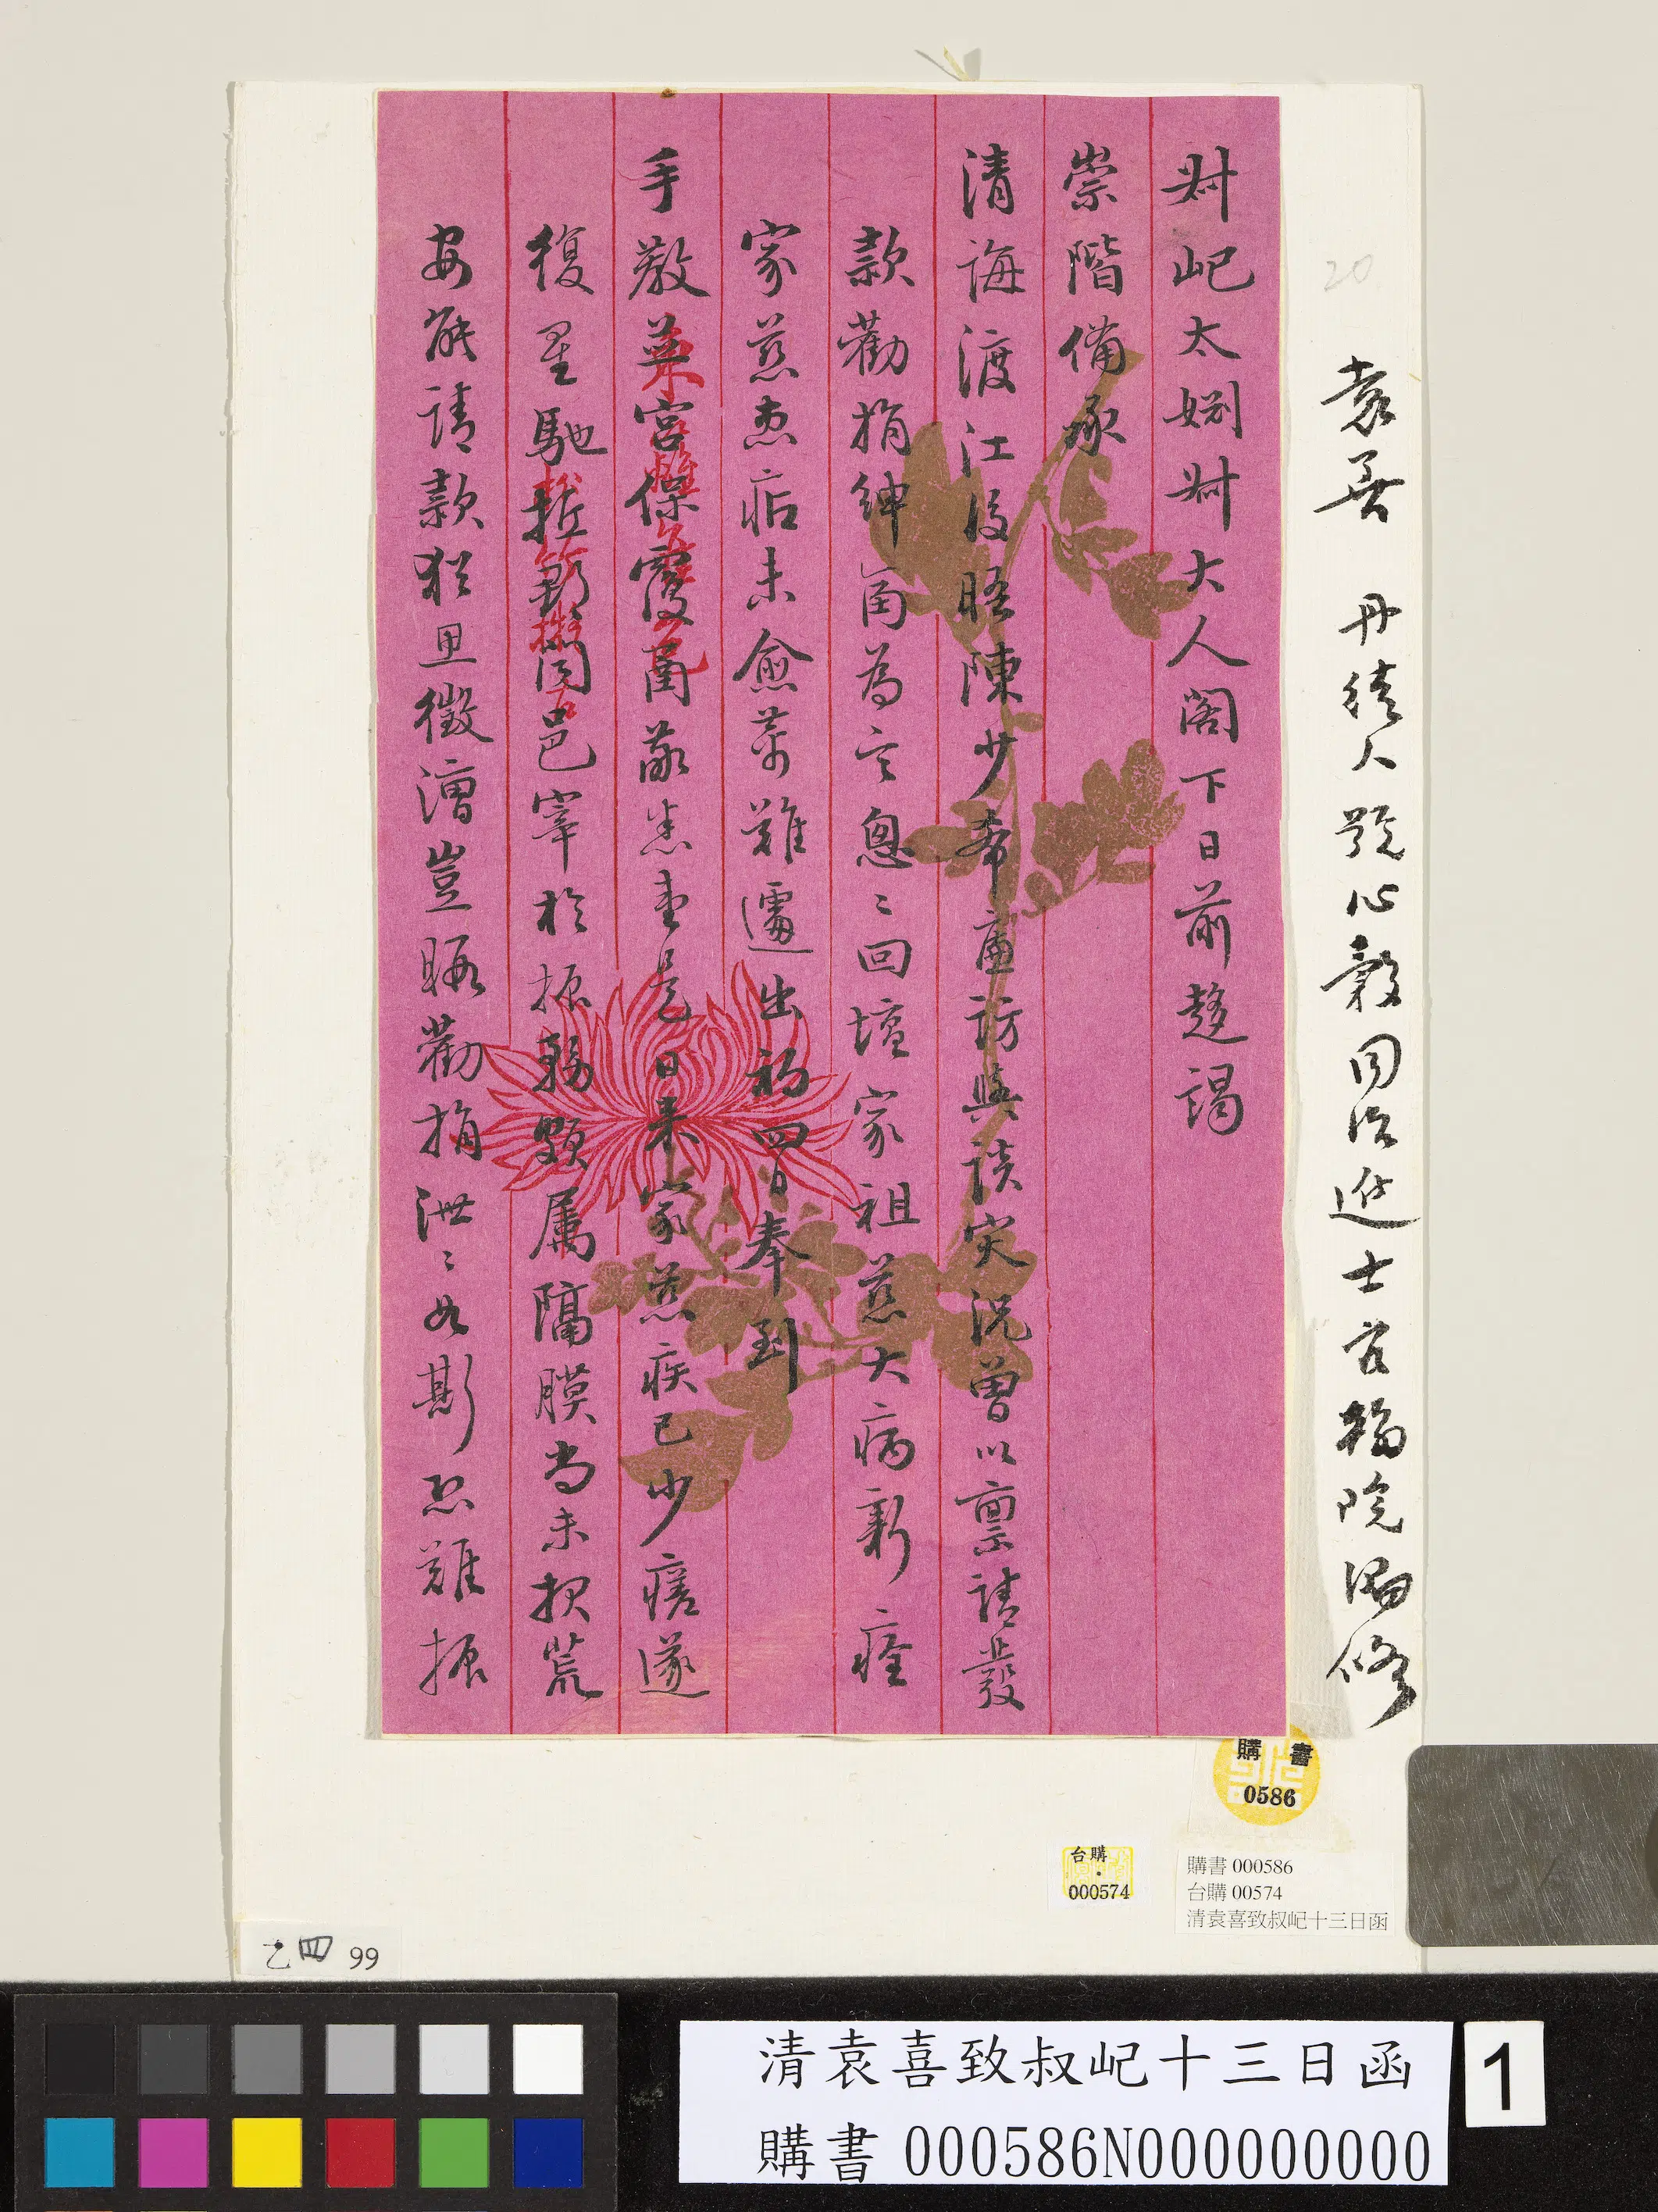 袁善 丹徒人 號心穀 同治進士 官翰院編修
20
叔屺太姻叔大人閣下日前趨謁
崇階備承
清誨渡江後晤陳少希廉訪與談灾況曾以禀請發
款勸捐紳商為言怱〻回壇家祖慈大病新痊
家慈患痁未愈萬難遽出初四日奉到
手教宮保覆函敬悉壹是日來家慈疾已少瘥遂
復星馳邑宰於振務頗屬隔膜尚未報荒
安能請款猶且徵漕豈暇勸捐泄〻如斯恐難振
購書
0586
台購
000574
購書 000586
台購 00574
清袁喜致叔屺十三日函
乙四 99
清袁喜致叔屺十三日函
購書 000586N000000000
1